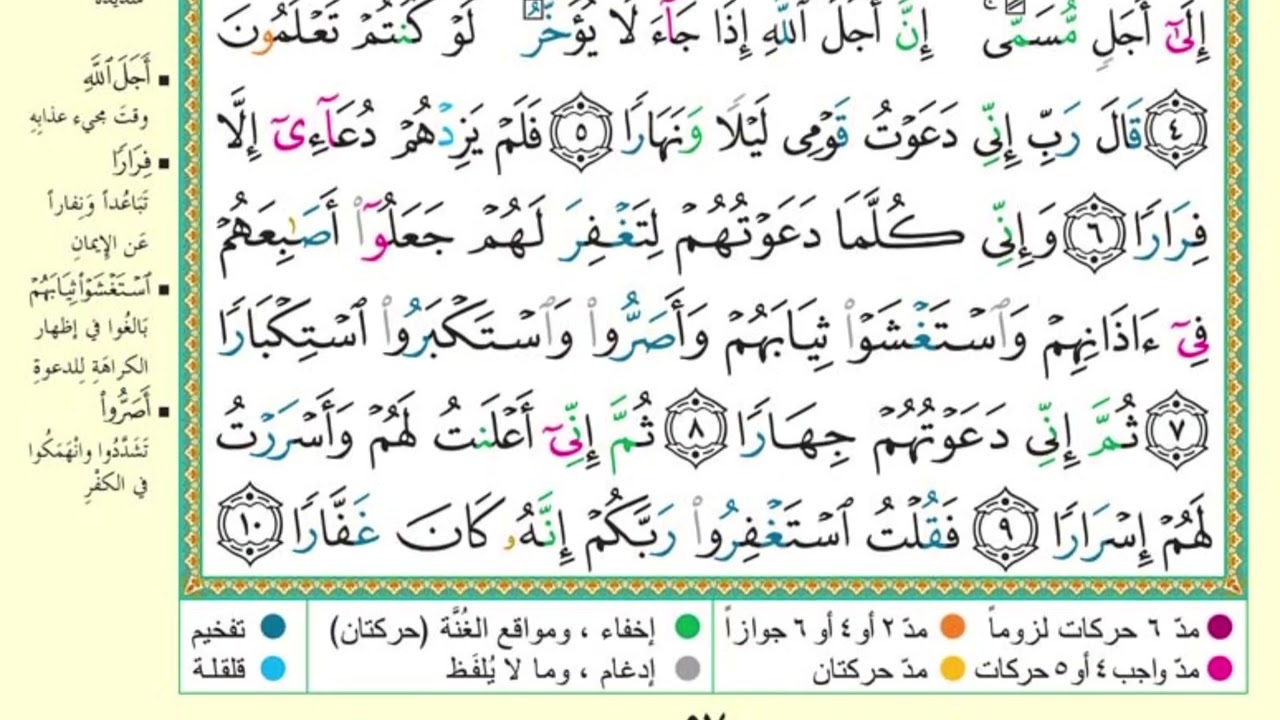 إِلَىٰٓ أَجَلٍ مُّسَمًّى إِنَّ أَجَلَ ٱللَّهِ إِذَا جَآءَ لَا يُؤَخَّرُ لَوْ كُنتُمْ تَعْلَمُونَ
٤ قَالَ رَبِّ إِنِّى دَعَوْتُ قَوْمِى لَيْلًا وَنَهَارًا ٥ فَلَمْ يَزِدْهُمْ دُعَآءِىٓ إِلَّا
فِرَارًا ٦ وَإِنِّى كُلَّمَا دَعَوْتُهُمْ لِتَغْفِرَ لَهُمْ جَعَلُوٓا۟ أَصَٰبِعَهُمْ
فِىٓ ءَاذَانِهِمْ وَٱسْتَغْشَوْا۟ ثِيَابَهُمْ وَأَصَرُّوا۟ وَٱسْتَكْبَرُوا۟ ٱسْتِكْبَارًا
٧ ثُمَّ إِنِّى دَعَوْتُهُمْ جِهَارًا ٨ ثُمَّ إِنِّىٓ أَعْلَنتُ لَهُمْ وَأَسْرَرْتُ
لَهُمْ إِسْرَارًا ٩ فَقُلْتُ ٱسْتَغْفِرُوا۟ رَبَّكُمْ إِنَّهُۥ كَانَ غَفَّارًا ١٠
أَجَلَ ٱللَّهِ
وقتَ مجيء عذابِهِ
فِرَارًا
تَبَاعُداً وَنِفاراً
عَن الإِيمانِ
ٱسْتَغْشَوْا۟ ثِيَابَهُمْ
بَالغُوا في إظهار
الكراهَةِ لِلدعوةِ
أَصَرُّوا۟
تَشَدَّدُوا وانْهَمَكُوا
في الكفْرِ
مدّ ٦ حركات لزوماً مدّ ٢ أو ٤ أو ٦ جوازاً إخفاء ، ومواقع الغُنَّة (حركتان) تفخيم
مدّ واجب ٤ أو ٥ حركات مدّ حركتان إدغام ، وما لا يُلفَظ قلقلة